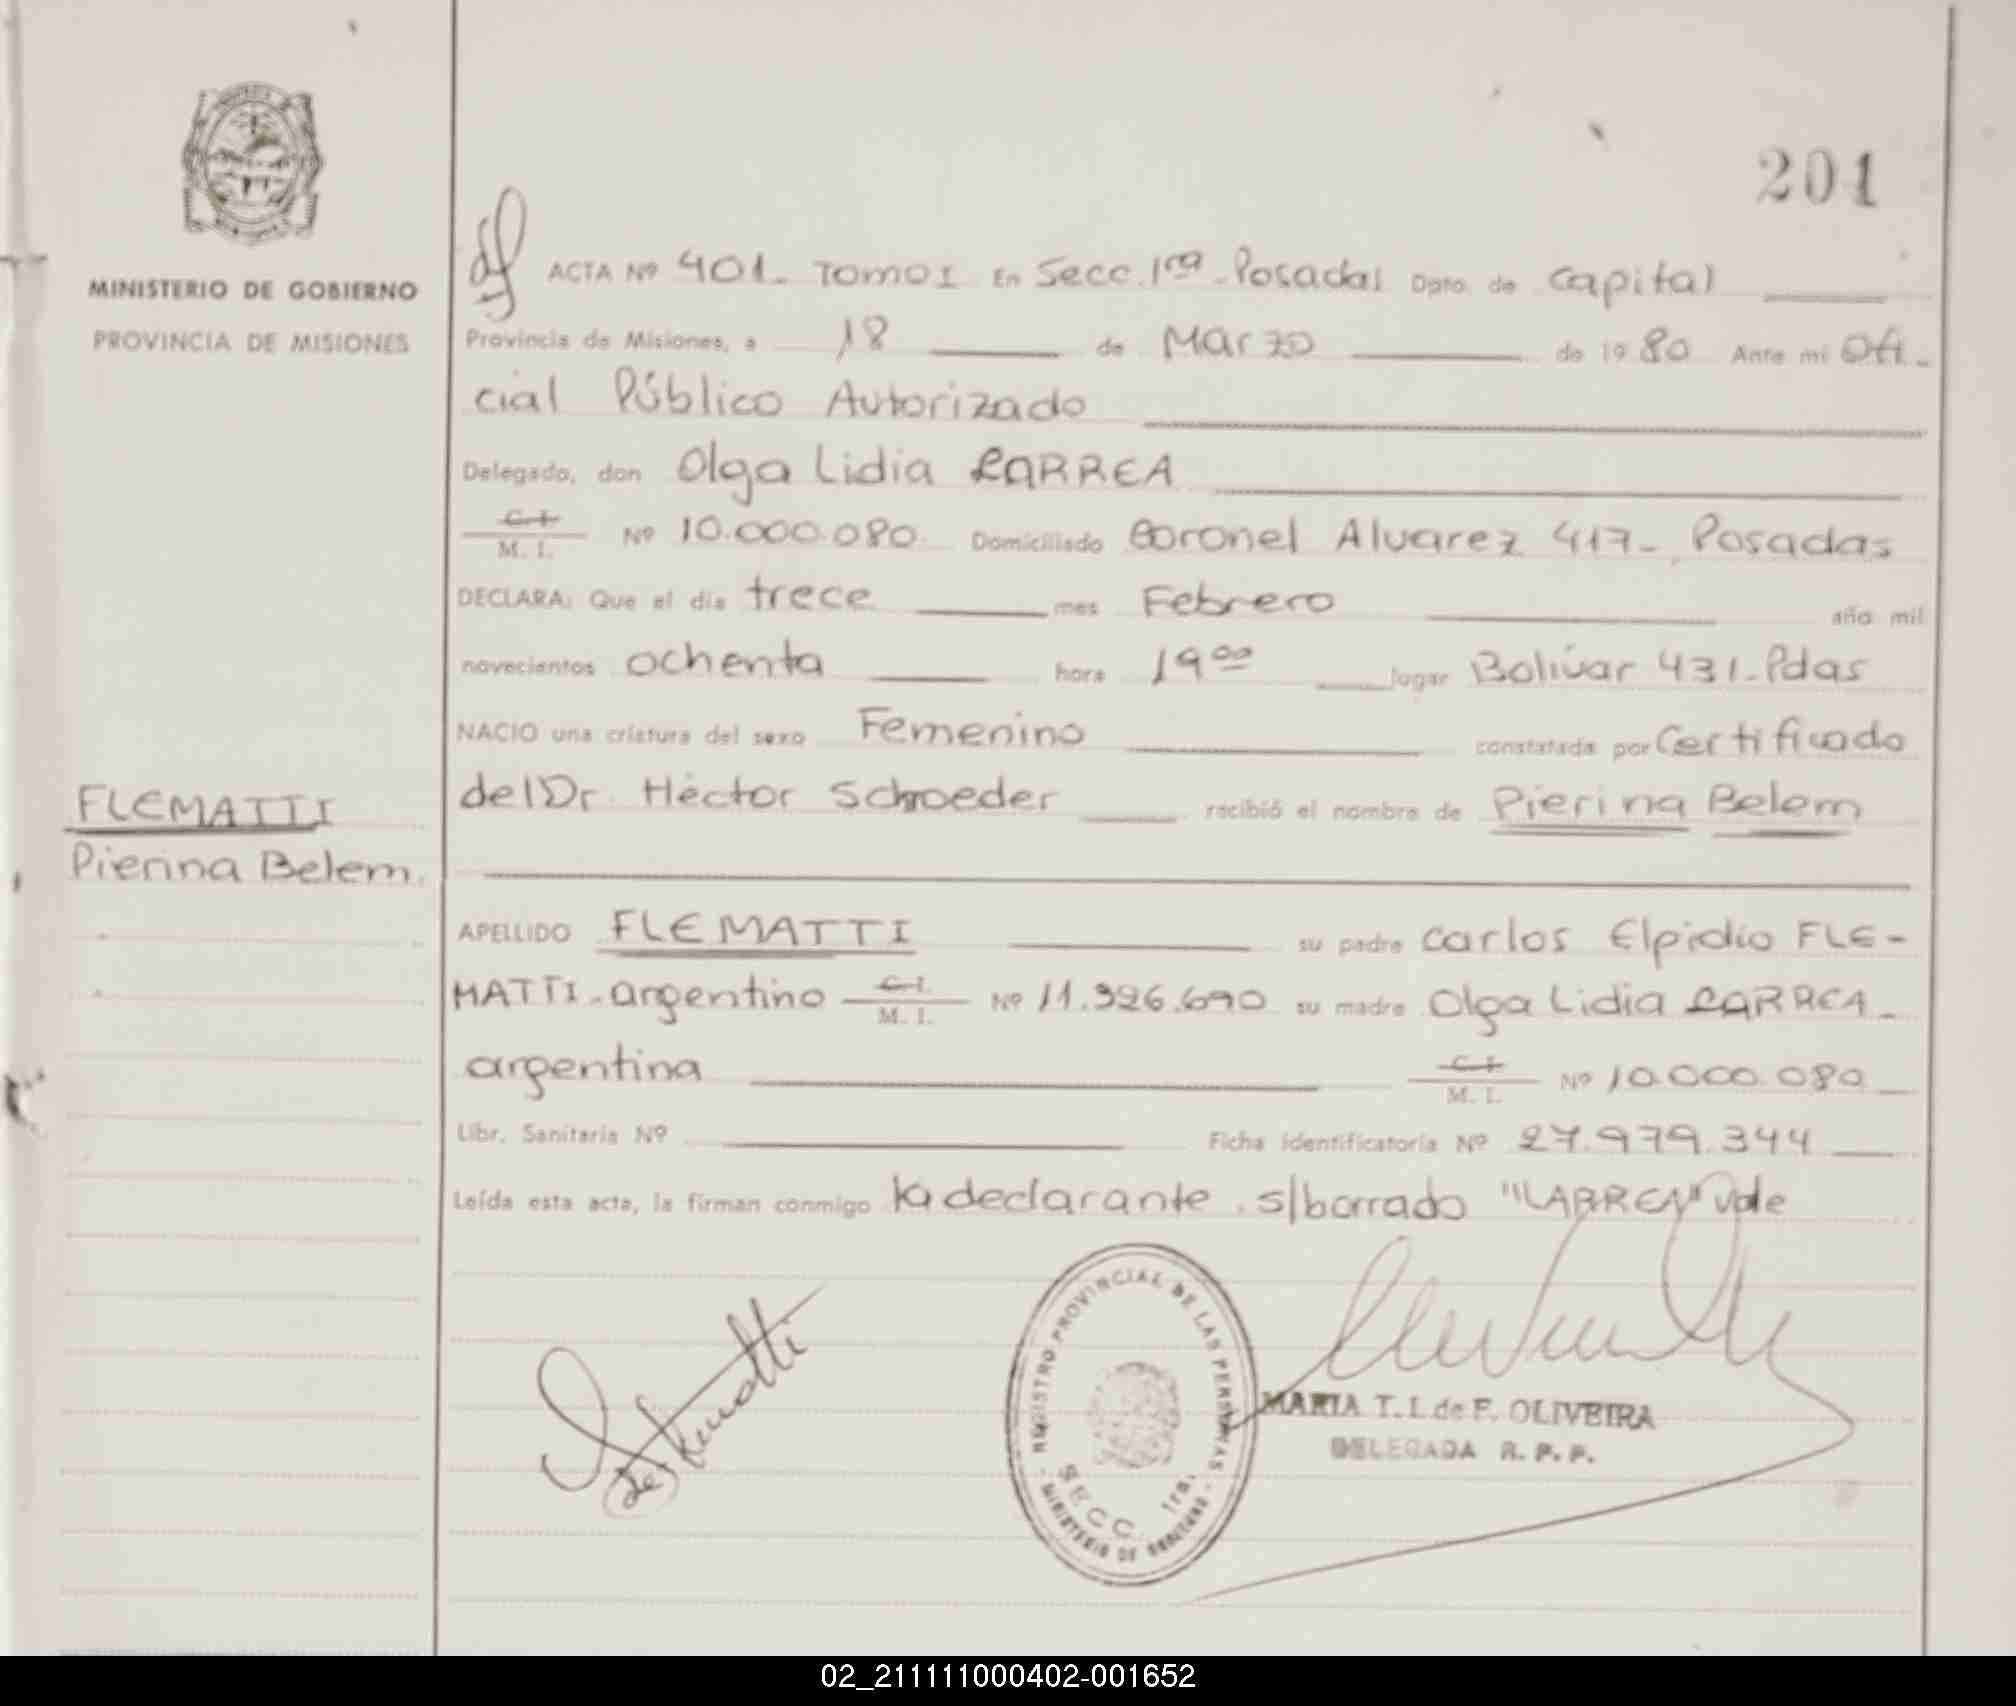 201
MINISTERIO DE GOBIERNO
PROVINCIA DE MISIONES
ACTA Nº 401.- TOMO I En Secc. 1ra - Posadas Dpto. de Capital
Provincia de Misiones, a 18 de Marzo de 1980 Ante mi Ofi-
cial Público Autorizado
Delegado, don Olga Lidia LARREA
C. I. M. I. Nº 10.000.080. Domiciliado Coronel Alvarez 417-. Posadas
DECLARA: Que el día trece mes Febrero año mil
novecientos ochenta hora 19 00 lugar Bolívar 431-Pdas
NACIO una criatura del sexo Femenino constatada por Certificado
del Dr. Héctor Schroeder recibió el nombre de Pierina Belem
FLEMATTI
Pierina Belem.
APELLIDO FLEMATTI su padre Carlos Elpidio FLE-
MATTI - argentino C. I. M. I. Nº 11.326.690 su madre Olga Lidia LARREA -
argentina C. I. M. I. Nº 10.000.080
Libr. Sanitaria Nº Ficha Identificatoria Nº 27.979.344
Leída esta acta, la firman conmigo la declarante. s/borrado "LARREA" vale
de Flematti
REGISTRO PROVINCIAL DE LAS PERSONAS
SECC. 1ra.
- MINISTERIO DE GOBIERNO -
MARIA T. I. de F. OLIVEIRA
DELEGADA R. P. P.
02_211111000402-001652